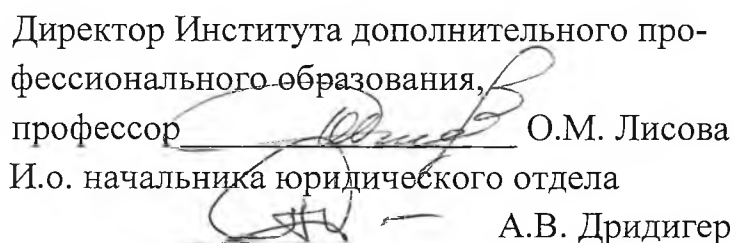 Директор Института дополнительного про-
фессионального образования,
профессор О.М. Лисова
И.о. начальника юридического отдела
А.В. Дридигер